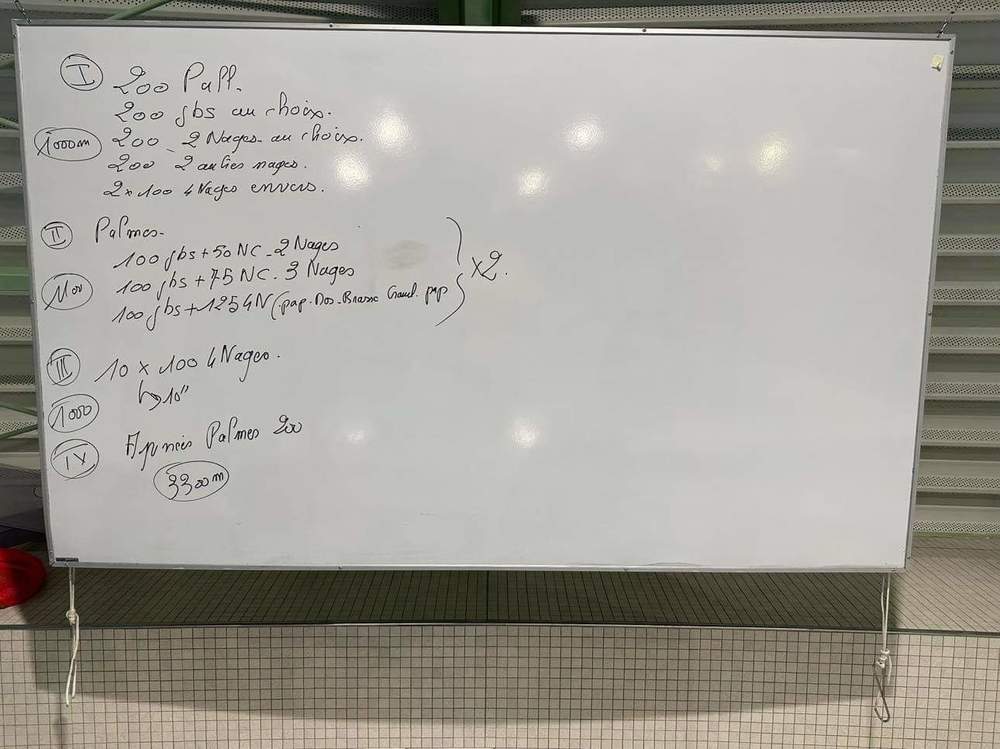 I 200 Pull.
200 jbs au choix.
1000m 200 - 2 Nages au choix.
200 2 autres nages.
2 x 100 4 Nages envers.
II Palmes.
100 jbs + 50 NC - 2 Nages
1100 100 jbs + 75 NC - 3 Nages
100 jbs + 125 4N (pap. Dos - Brasse Crawl. pap
x2.
III 10 x 100 4 Nages.
↳ 10"
1000
IV Apnées Palmes 200
3300m